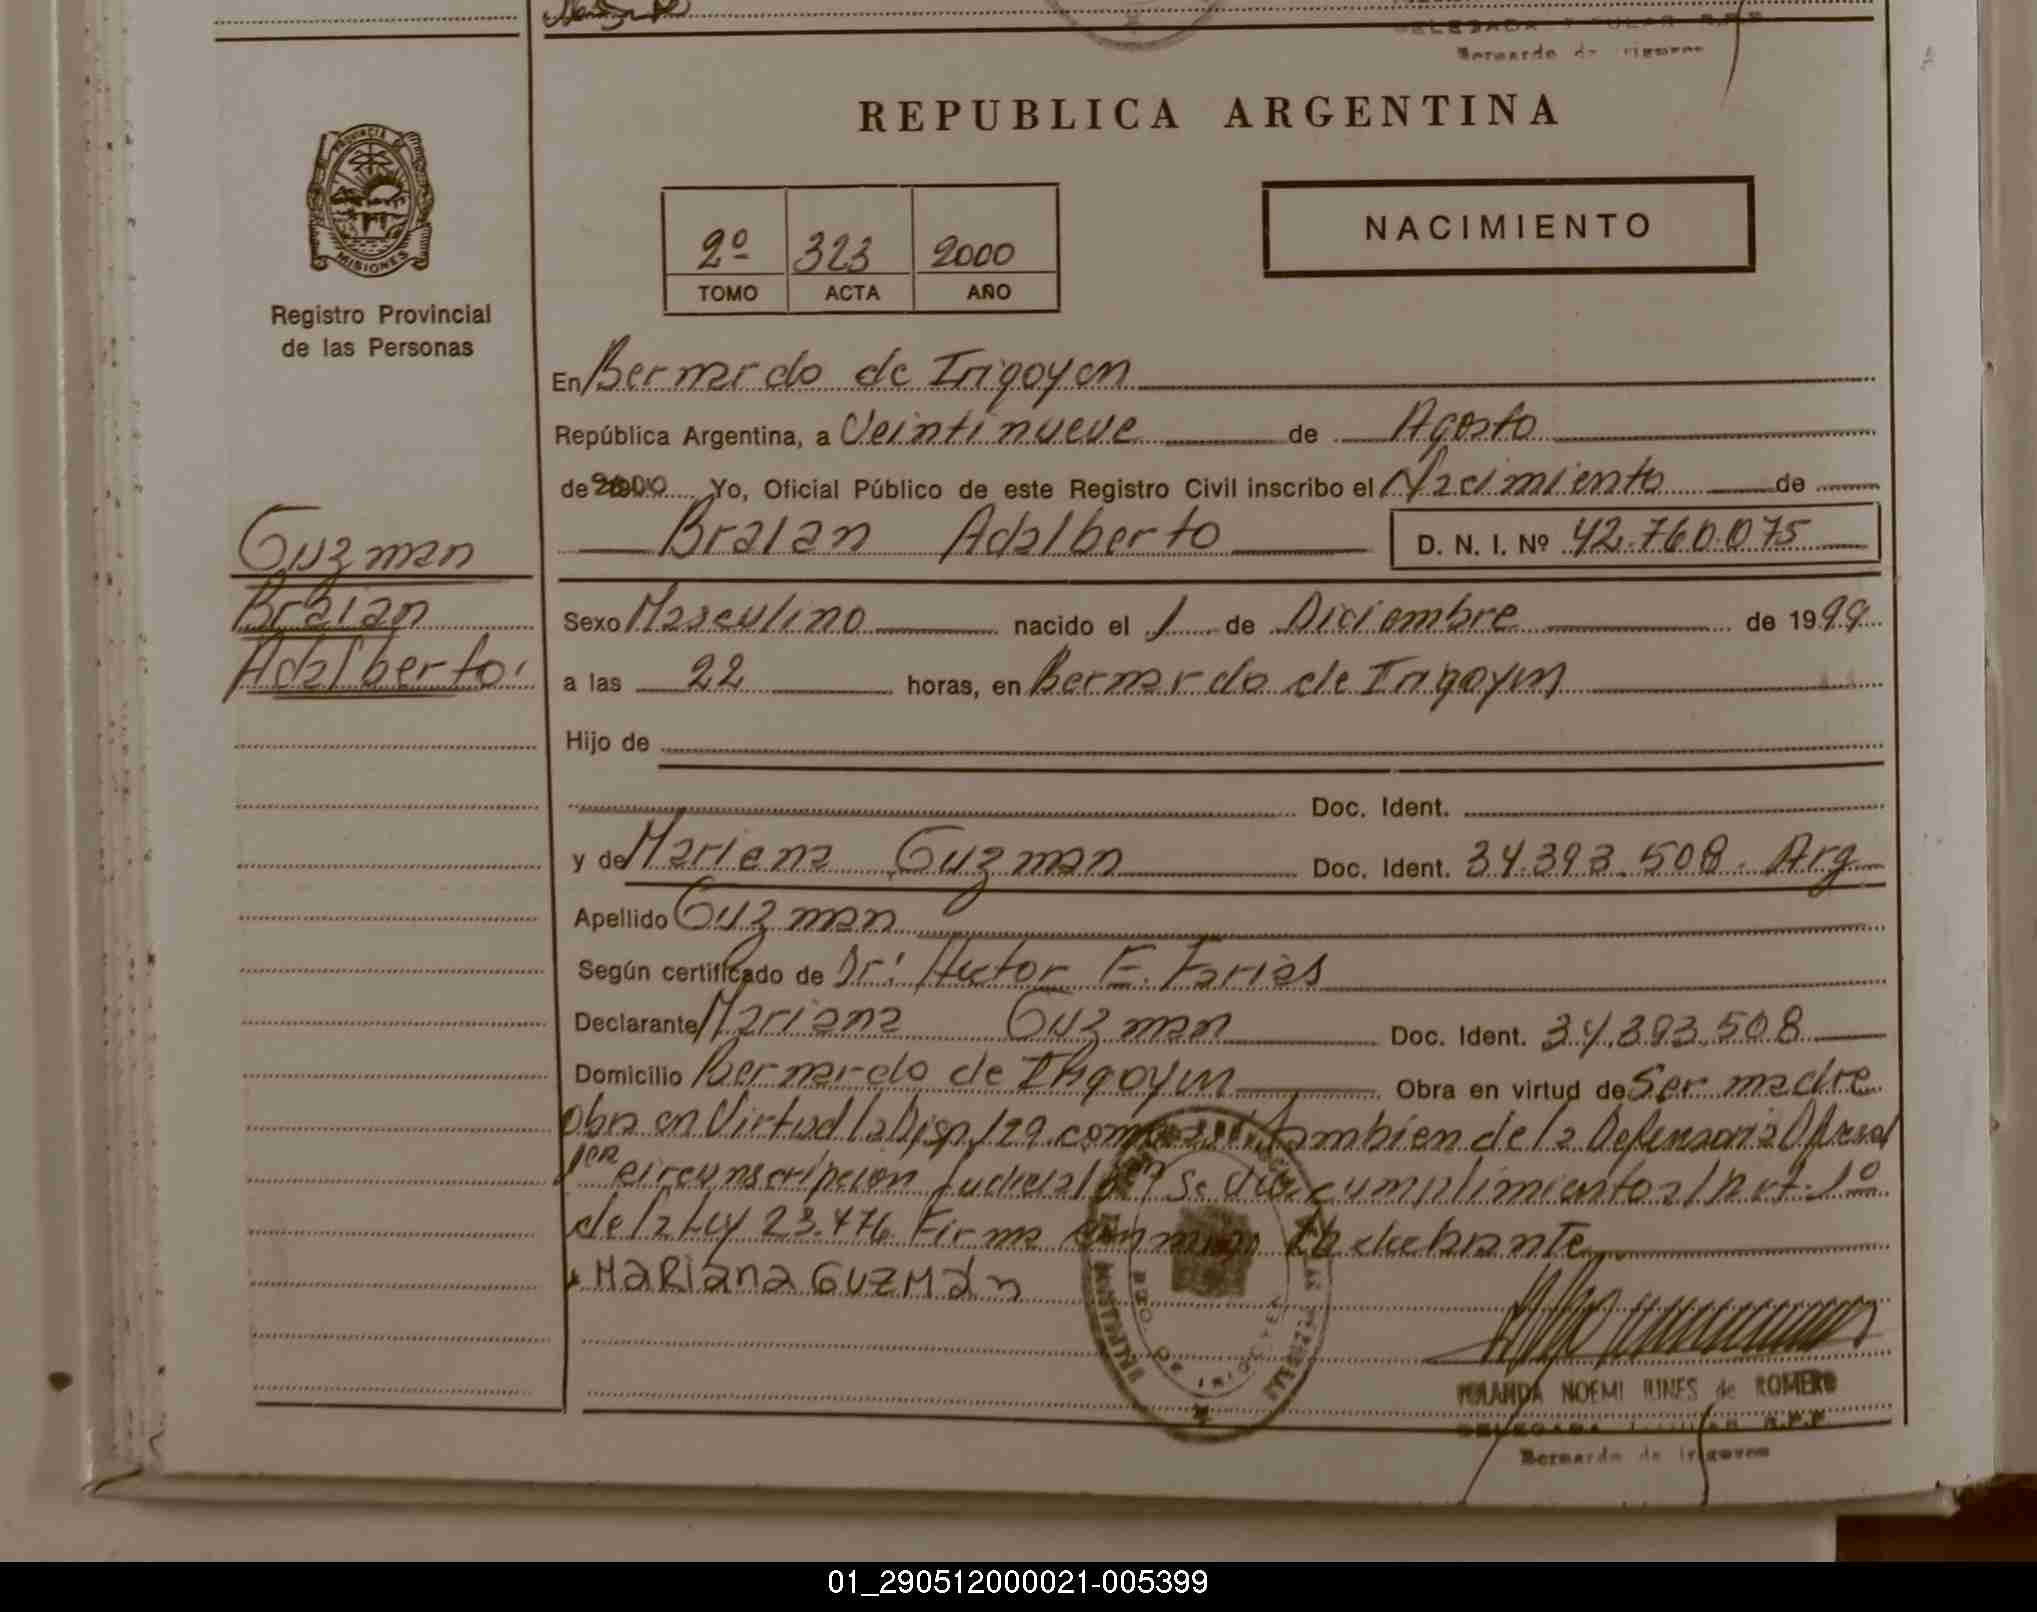 Bernardo de Irigoyen
REPUBLICA ARGENTINA
PROVINCIA DE
MISIONES
Registro Provincial
de las Personas
2º 323 2000
TOMO ACTA AÑO
NACIMIENTO
En Bernardo de Irigoyen
República Argentina, a Veintinueve de Agosto
de 2000 Yo, Oficial Público de este Registro Civil inscribo el Nacimiento de
Braian Adalberto D. N. I. Nº 42.760.075
Guzman
Braian
Adalberto
Sexo Masculino nacido el 1 de Diciembre de 1999
a las 22 horas, en Bernardo de Irigoyen
Hijo de
Doc. Ident.
y de Mariana Guzman Doc. Ident. 34.393.508. Arg
Apellido Guzman
Según certificado de Dr: Hector E. Farias
Declarante Mariana Guzman Doc. Ident. 34.393.508
Domicilio Bernardo de Irigoyen Obra en virtud de Ser madre
Obra en Virtud la Disp. 129 como tambien de la Defensoria Oficial
1era circunscripcion Judicial Se dio cumplimiento al Art. 1º
de la Ley 23.476 Firma conmigo la declarante
MARiana GUZMán
YOLANDA NOEMI BINES de ROMERO
DELEGADA TITULAR R.P.P
Bernardo de Irigoyen
01_290512000021-005399